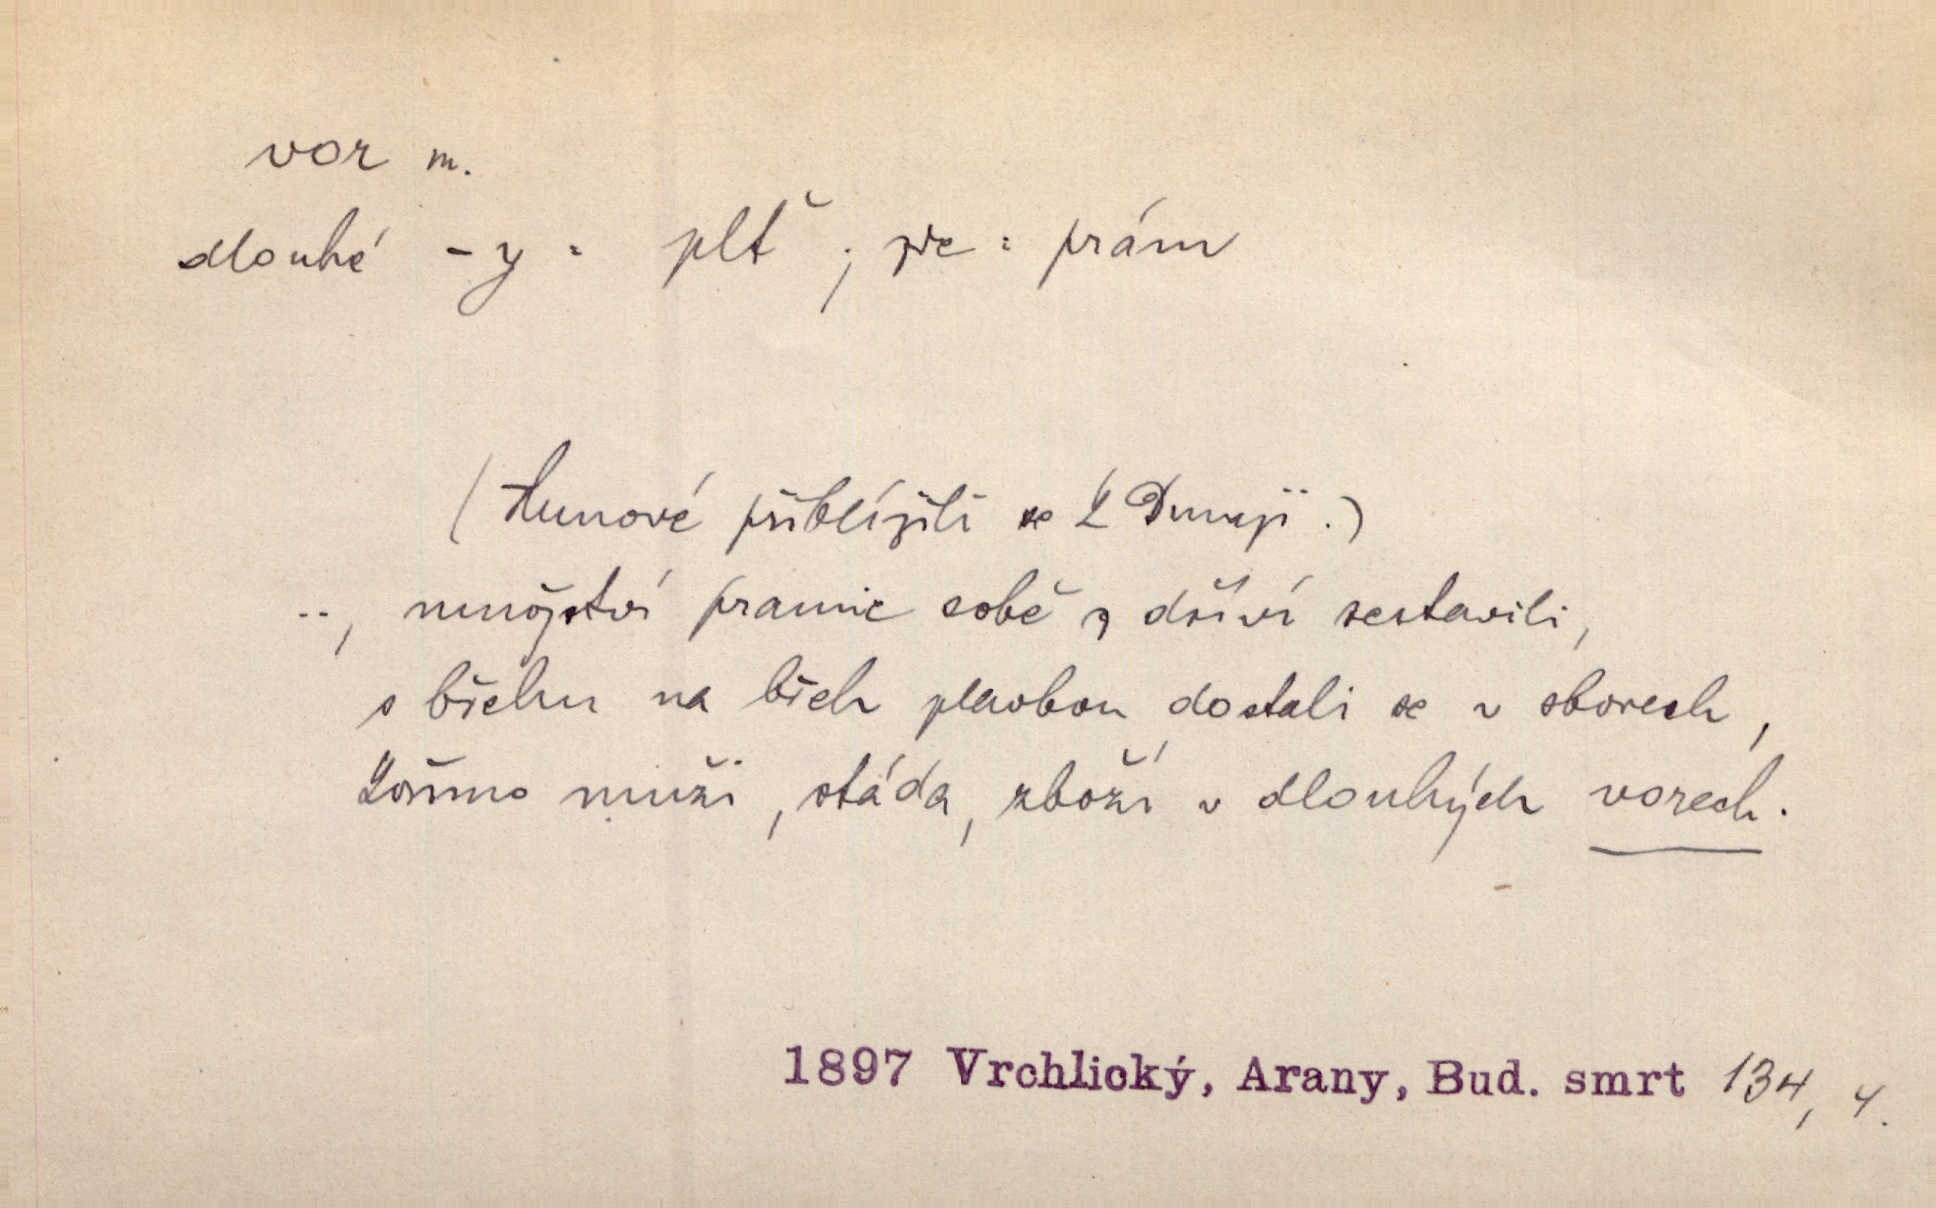 vor m.
dlouhé -y = plť ; zde = prám
(Hunové přiblížili se k Dunaji.)
.., množství pramic sobě z dříví sestavili,
s břehu na břeh plavbou dostali se v sborech,
koňmo muži, stáda, zboží v dlouhých vorech.
1897 Vrchlický, Arany, Bud. smrt 134, 4.